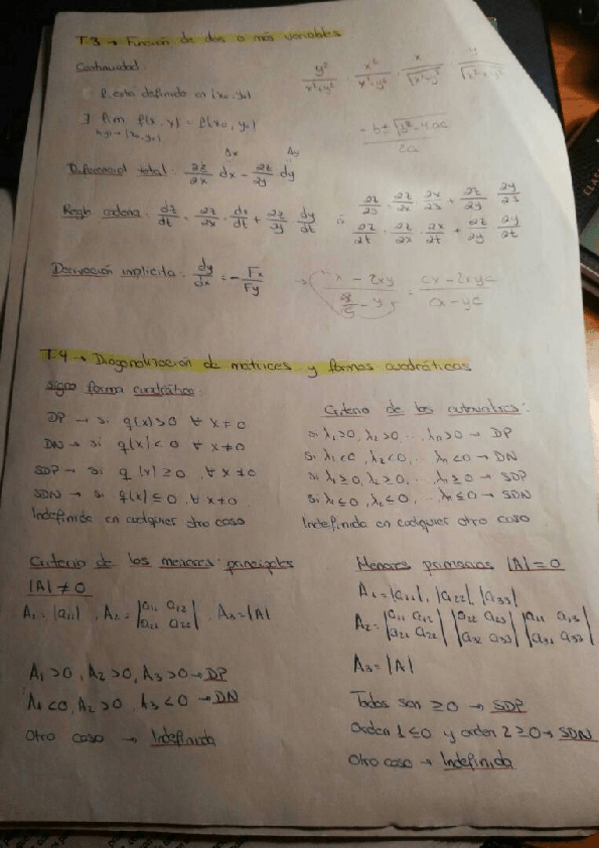 T.3 → Función de dos o más variables
Continuidad:
f está definida en (x0, y0)
∃ lim f(x, y) = f(x0, y0)
(x,y)→(x0, y0)
y²/(x²+y²) · x²/(x²+y²) · x/√(x²+y²)
-b ± √(b²-4ac) / 2a
Δx Δy
Diferencial total: ∂z/∂x dx - ∂z/∂y dy
Regla cadena: dz/dt = ∂z/∂x · dx/dt + ∂z/∂y dy/dt
∂z/∂s = ∂z/∂x ∂x/∂s + ∂z/∂y ∂y/∂s
∂z/∂t = ∂z/∂x · ∂x/∂t + ∂z/∂y ∂y/∂t
Derivación implícita: dy/dx = - Fx/Fy
cx - 2xyc / cx - yc
T.4 → Diagonalización de matrices y formas cuadráticas
Signo forma cuadrática:
DP → si q(x) > 0 ∀ x = 0
DN → si q(x) < 0 ∀ x ≠ 0
SDP → si q(x) ≥ 0 ∀ x ≠ 0
SDN → si q(x) ≤ 0 ∀ x ≠ 0
Indefinida en cualquier otro caso
Criterio de los autovalores:
si λ1>0, λ2>0, ... λn>0 → DP
si λ1<0, λ2<0, ... λn<0 → DN
si λ1≥0, λ2≥0, ... λn≥0 → SDP
si λ1≤0, λ2≤0, ... λn≤0 → SDN
Indefinida en cualquier otro caso
Criterio de los menores principales
|A| ≠ 0
A1 = |a11|, A2 = |a11 a12
a21 a22|, A3 = |A|
A1 > 0, A2 > 0, A3 > 0 → DP
A1 < 0, A2 > 0, A3 < 0 → DN
Otro caso → Indefinida
Menores primarios |A| = 0
A1 = |a11|, |a22|, |a33|
A2 = |a11 a12 |a22 a23 |a11 a13
a21 a22| a32 a33| a31 a33|
A3 = |A|
Todos son ≥ 0 → SDP
Orden 1 ≤ 0 y orden 2 ≥ 0 → SDN
Otro caso → Indefinida